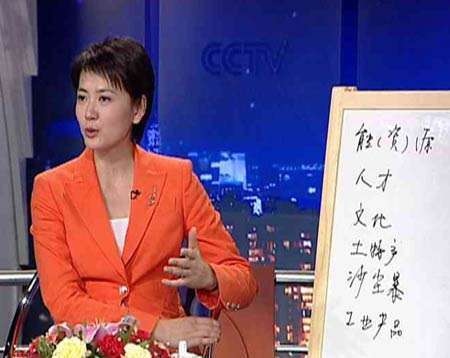 CCTV
能(资)源
人才
文化
土特产
沙尘暴
工业产品